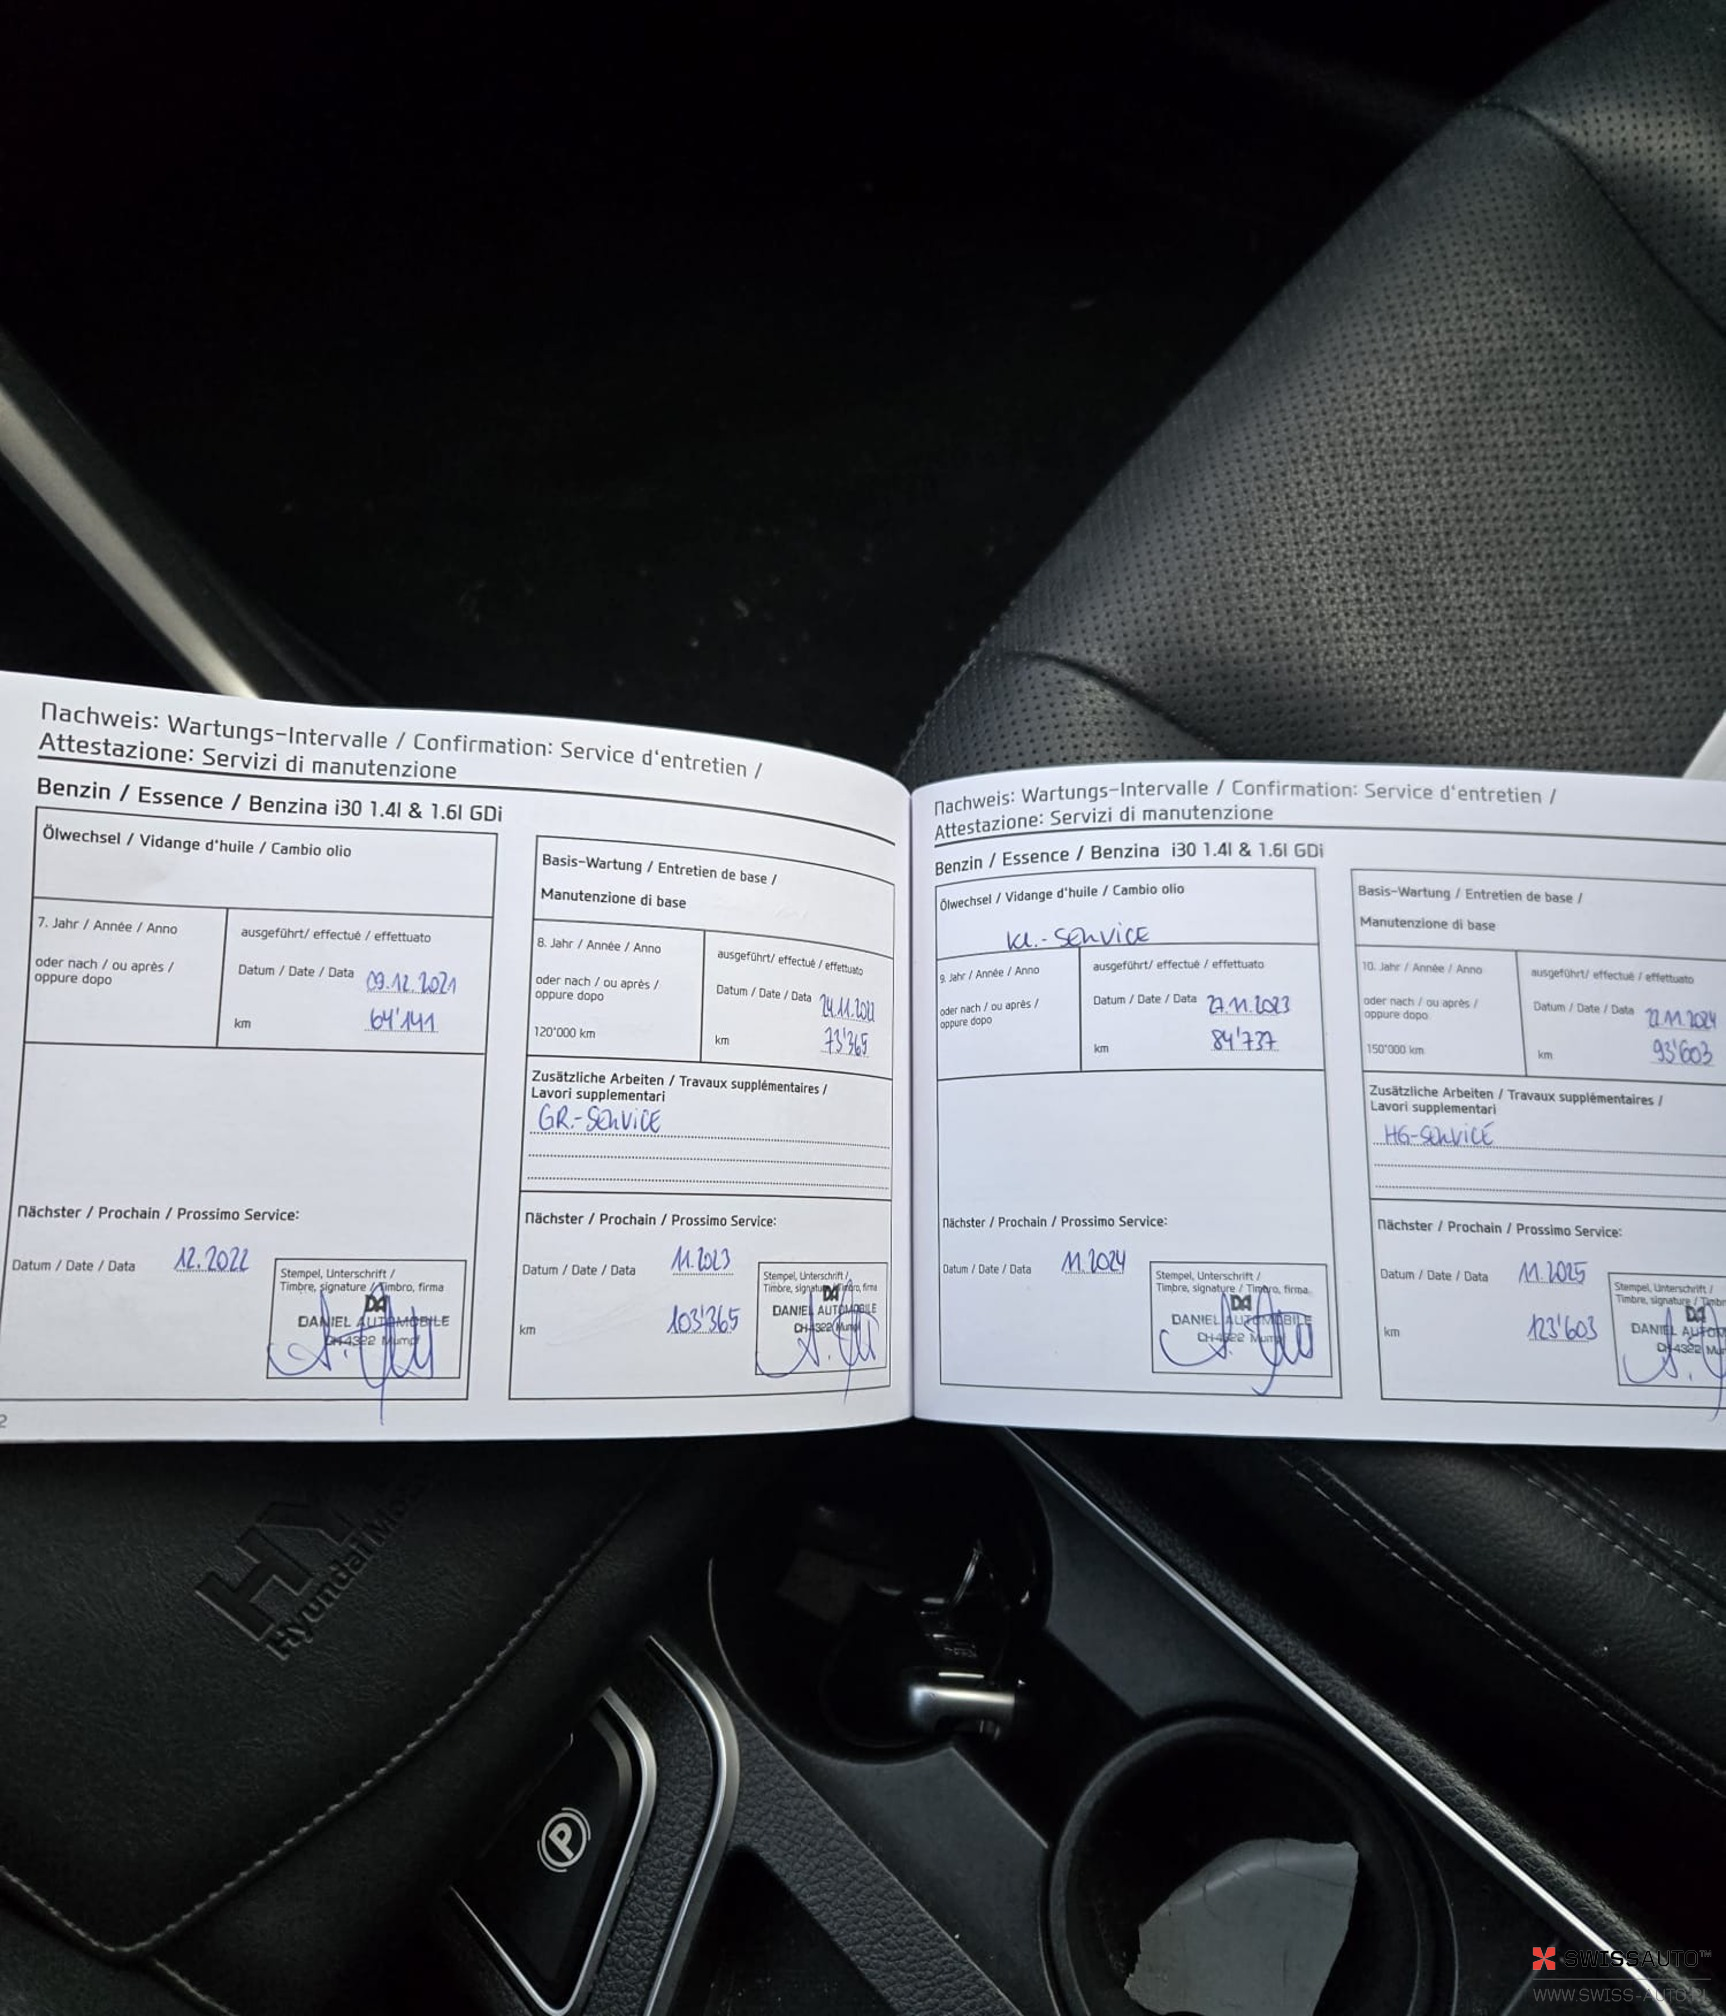 Nachweis: Wartungs-Intervalle / Confirmation: Service d'entretien /
Attestazione: Servizi di manutenzione
Benzin / Essence / Benzina i30 1.4l & 1.6l GDi
Ölwechsel / Vidange d'huile / Cambio olio
7. Jahr / Année / Anno
oder nach / ou après /
oppure dopo
ausgeführt/ effectué / effettuato
Datum / Date / Data 09.12.2021
km 64'141
Nächster / Prochain / Prossimo Service:
Datum / Date / Data 12.2022
Stempel, Unterschrift /
Timbre, signature / Timbro, firma
DA
DANIEL AUTOMOBILE
CH-4322 Mumpf
2
Basis-Wartung / Entretien de base /
Manutenzione di base
8. Jahr / Année / Anno
oder nach / ou après /
oppure dopo
120'000 km
ausgeführt/ effectué / effettuato
Datum / Date / Data 24.11.2022
km 73'365
Zusätzliche Arbeiten / Travaux supplémentaires /
Lavori supplementari
GR.-SERVICE
Nächster / Prochain / Prossimo Service:
Datum / Date / Data 11.2023
km 103'365
Stempel, Unterschrift /
Timbre, signature / Timbro, firma
DA
DANIEL AUTOMOBILE
CH-4322 Mumpf
Nachweis: Wartungs-Intervalle / Confirmation: Service d'entretien /
Attestazione: Servizi di manutenzione
Benzin / Essence / Benzina i30 1.4l & 1.6l GDi
Ölwechsel / Vidange d'huile / Cambio olio
KL.-SERVICE
9. Jahr / Année / Anno
oder nach / ou après /
oppure dopo
ausgeführt/ effectué / effettuato
Datum / Date / Data 27.11.2023
km 84'737
Nächster / Prochain / Prossimo Service:
Datum / Date / Data 11.2024
Stempel, Unterschrift /
Timbre, signature / Timbro, firma
DA
DANIEL AUTOMOBILE
CH-4322 Mumpf
Basis-Wartung / Entretien de base /
Manutenzione di base
10. Jahr / Année / Anno
oder nach / ou après /
oppure dopo
150'000 km
ausgeführt/ effectué / effettuato
Datum / Date / Data 22.11.2024
km 93'603
Zusätzliche Arbeiten / Travaux supplémentaires /
Lavori supplementari
HG-SERVICE
Nächster / Prochain / Prossimo Service:
Datum / Date / Data 11.2025
km 123'603
Stempel, Unterschrift /
Timbre, signature / Timb
DA
DANIEL AUTOM
CH-4322 Mu
HY
Hyundai Mo
P
SWISSAUTO™
WWW.SWISS-AUTO.